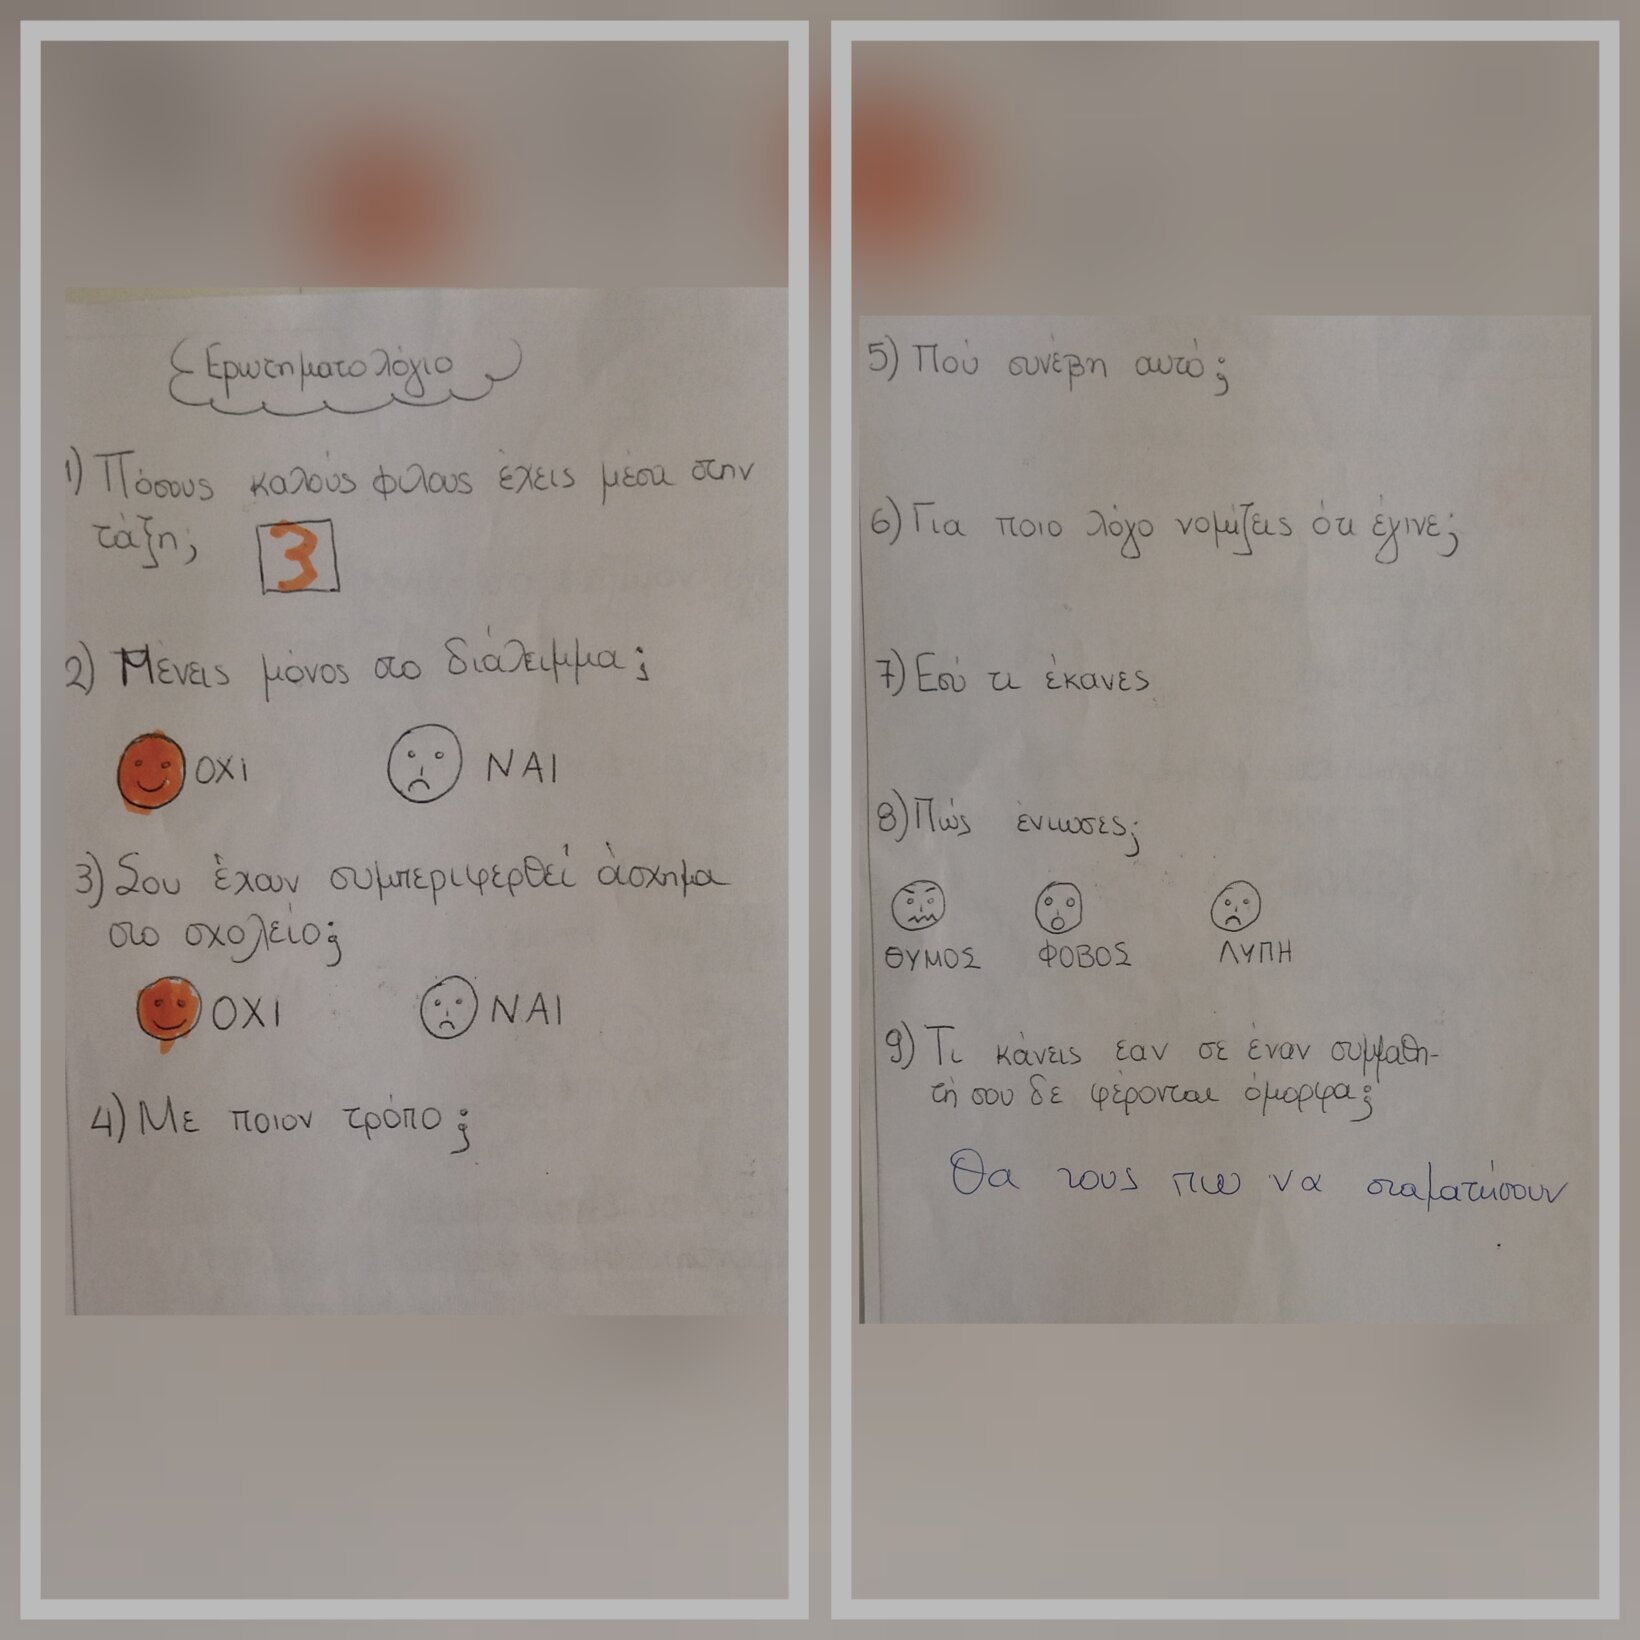 Ερωτηματολόγιο
1) Πόσους καλούς φίλους έχεις μέσα στην
τάξη;
3
2) Μένεις μόνος στο διάλειμμα;
ΟΧΙ ΝΑΙ
3) Σου έχουν συμπεριφερθεί άσχημα
στο σχολείο;
ΟΧΙ ΝΑΙ
4) Με ποιον τρόπο;
5) Πού συνέβη αυτό;
6) Για ποιο λόγο νομίζεις ότι έγινε;
7) Εσύ τι έκανες
8) Πώς ένιωσες;
ΘΥΜΟΣ ΦΟΒΟΣ ΛΥΠΗ
9) Τι κάνεις εαν σε έναν συμμαθη-
τή σου δε φέρονται όμορφα;
Θα τους πω να σταματήσουν